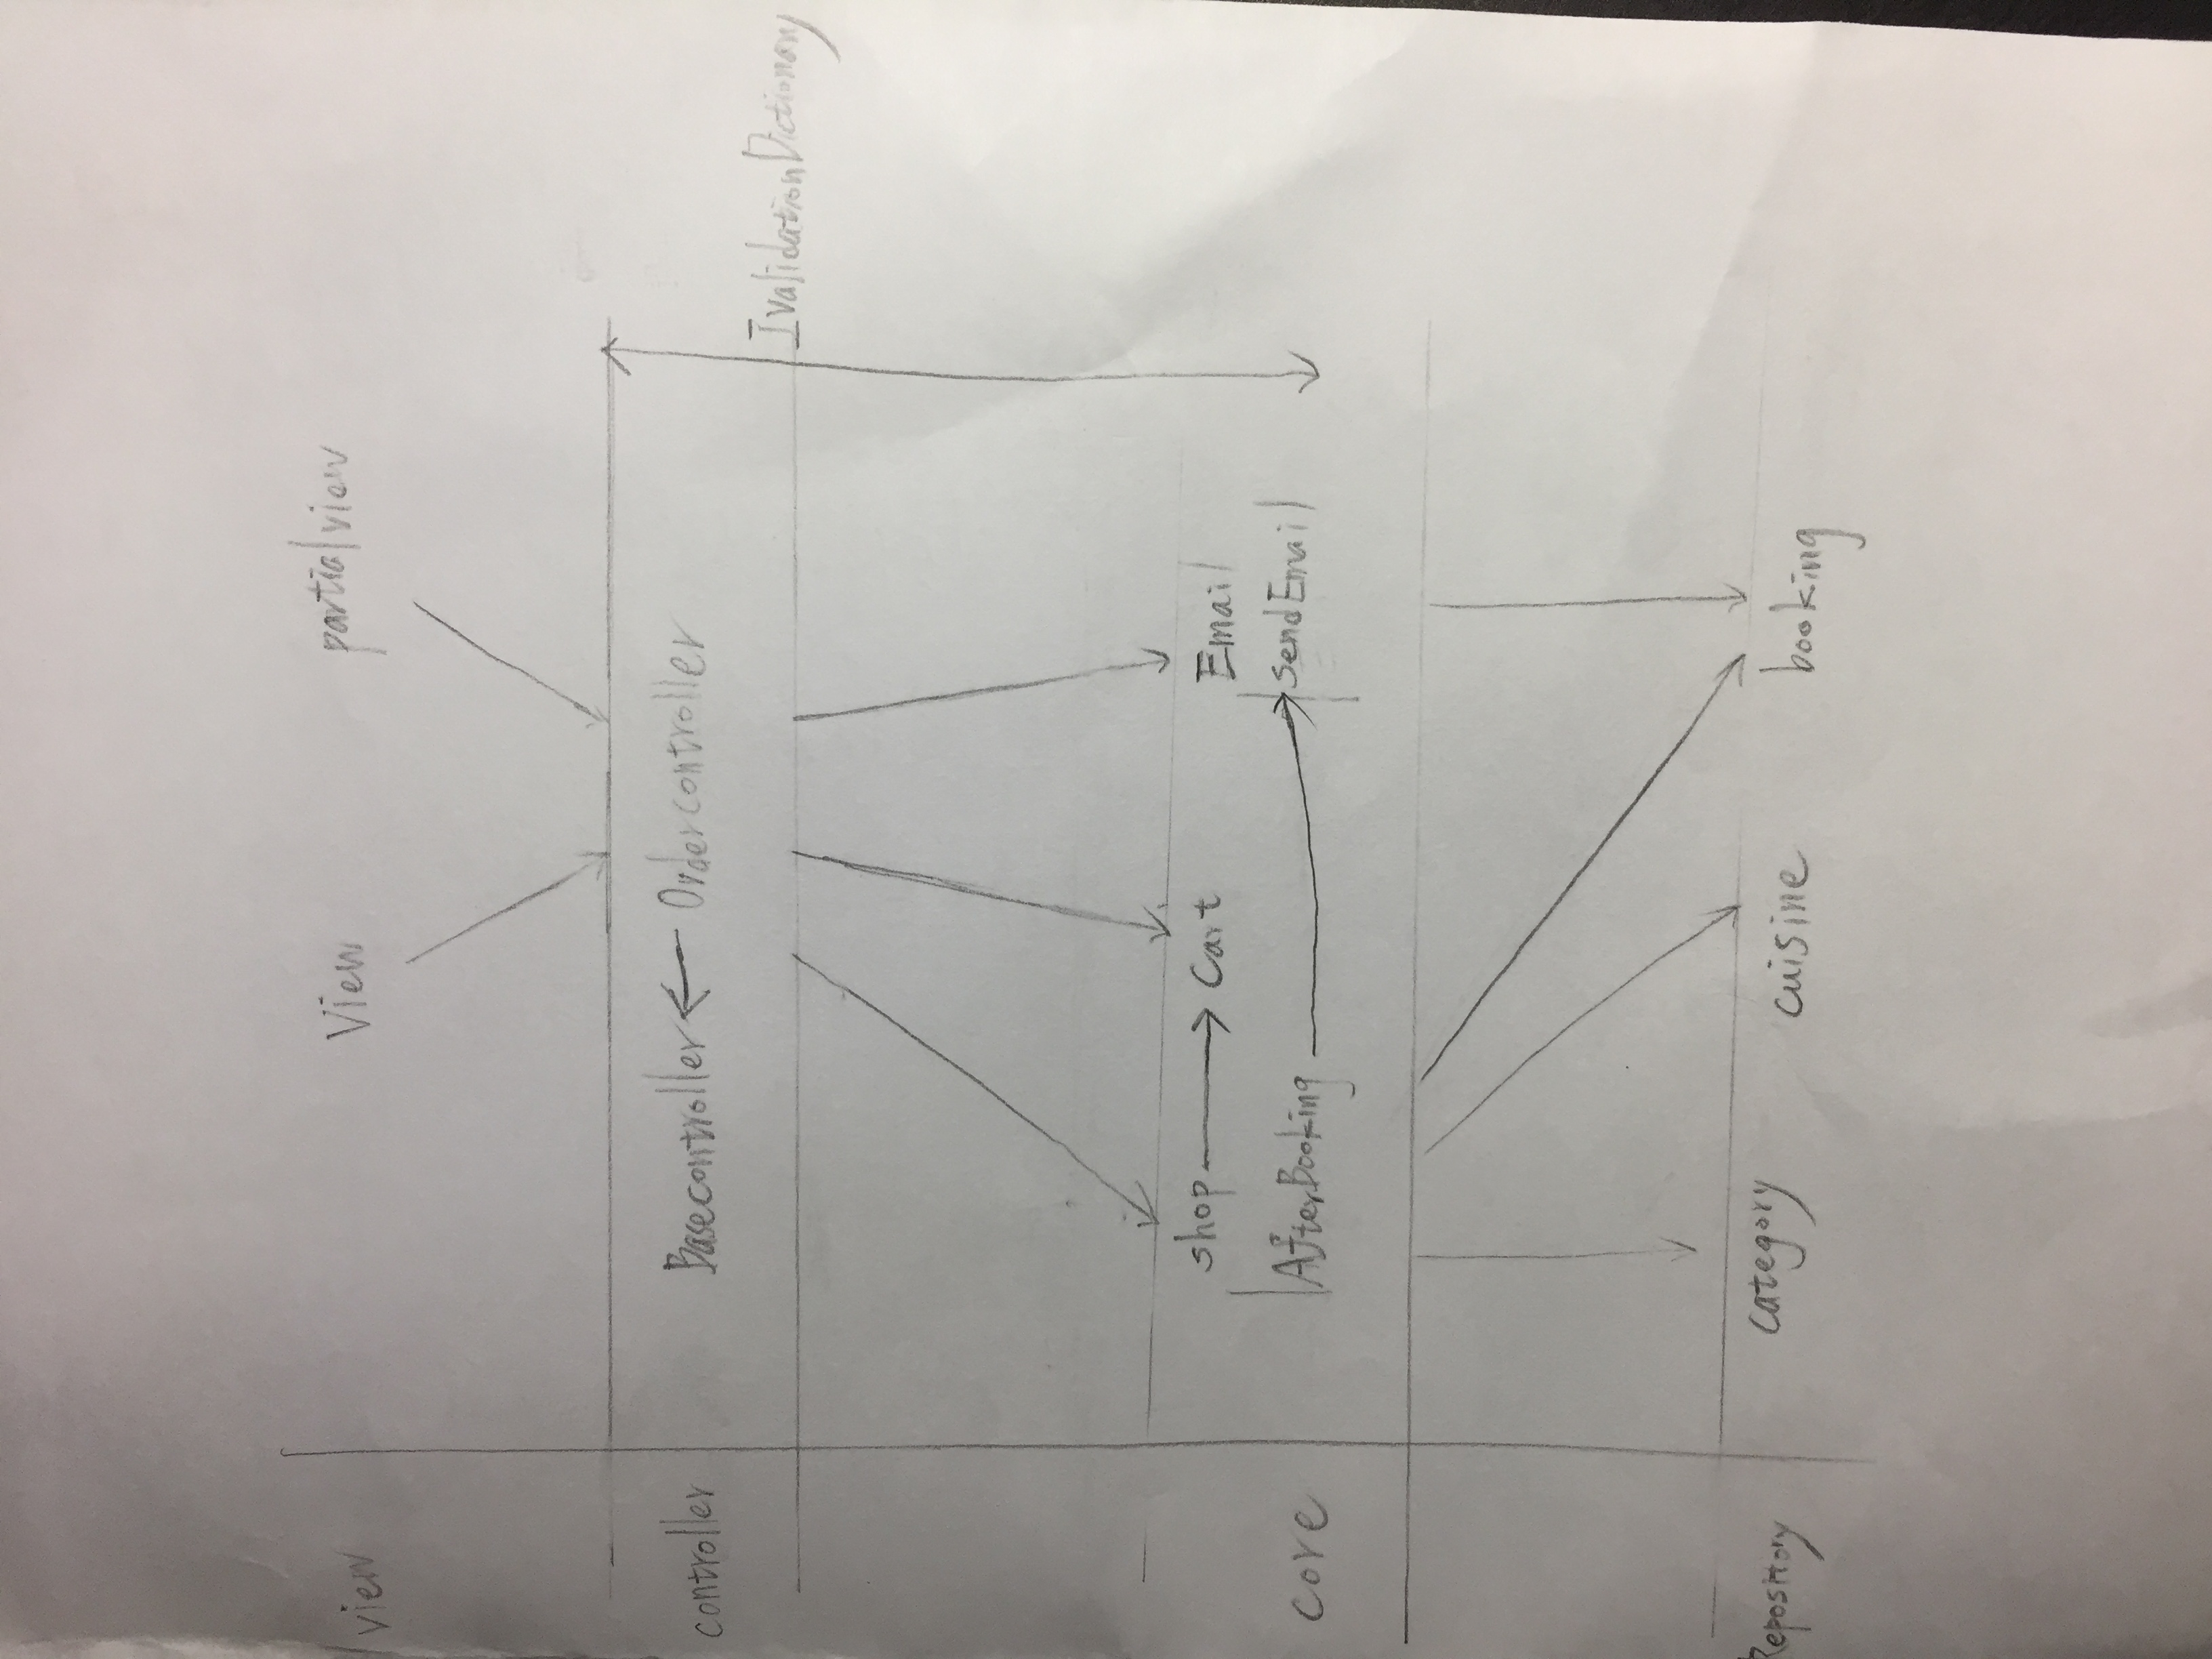 view
View
partialview
controller
Basecontroller
Ordercontroller
IvalidationDictionary
shop
Cart
Email
core
AfterBooking
sendEmail
Repository
category
cuisine
booking